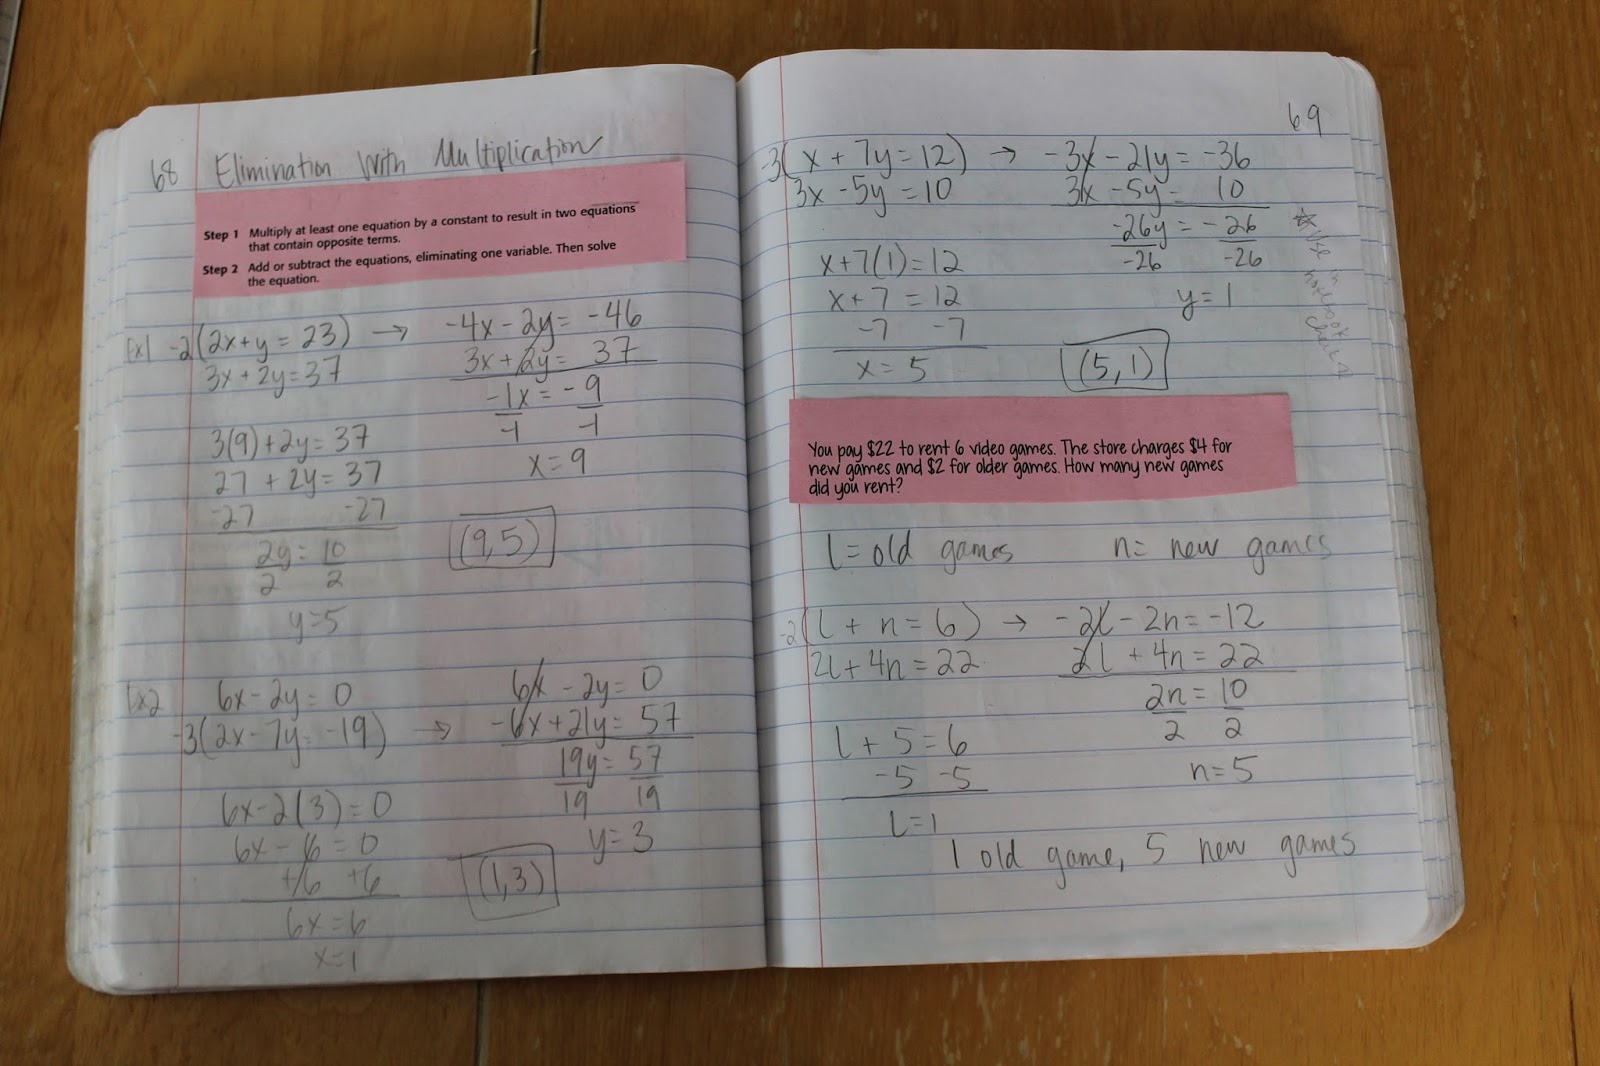 68 Elimination With Multiplication
Step 1 Multiply at least one equation by a constant to result in two equations
that contain opposite terms.
Step 2 Add or subtract the equations, eliminating one variable. Then solve
the equation.
Ex1 -2(2x+y = 23) → -4x - 2y = -46
3x + 2y = 37 3x + 2y = 37
-1x = -9
-1 -1
x = 9
3(9) + 2y = 37
27 + 2y = 37
-27 -27
2y = 10
2 2
y = 5
(9,5)
Ex2 6x - 2y = 0 6x - 2y = 0
-3(2x - 7y = -19) → -6x + 21y = 57
19y = 57
19 19
y = 3
6x - 2(3) = 0
6x - 6 = 0
+6 +6
6x = 6
x = 1
(1,3)
69
-3(x + 7y = 12) → -3x - 21y = -36
3x - 5y = 10 3x - 5y = 10
-26y = -26
-26 -26
y = 1
x + 7(1) = 12
x + 7 = 12
-7 -7
x = 5
(5,1)
☆ Use in notebook
You pay $22 to rent 6 video games. The store charges $4 for
new games and $2 for older games. How many new games
did you rent?
l = old games n = new games
-2(l + n = 6) → -2l - 2n = -12
2l + 4n = 22 2l + 4n = 22
2n = 10
2 2
n = 5
l + 5 = 6
-5 -5
l = 1
1 old game, 5 new games